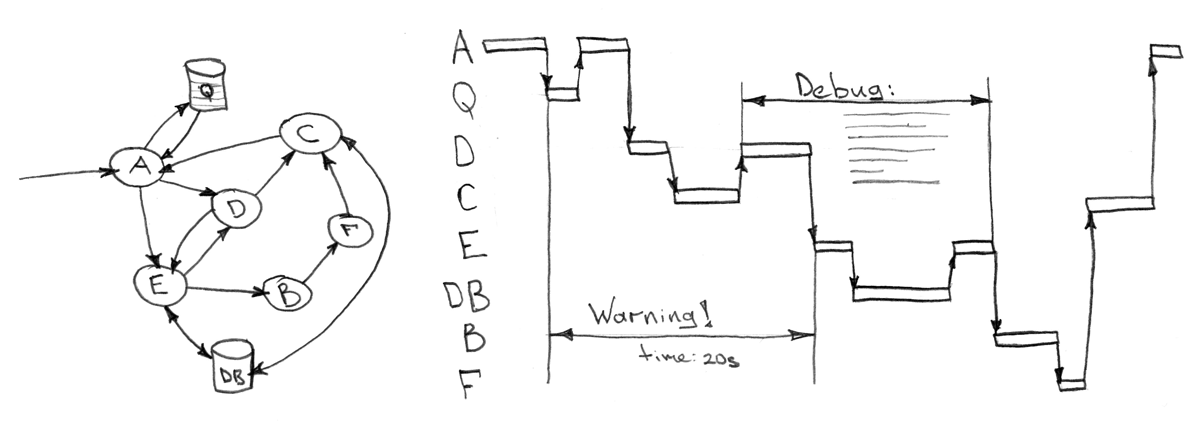 Q
A
C
D
F
E
B
DB
A
Q
D
C
E
DB
B
F
Debug:
Warning!
time: 20s